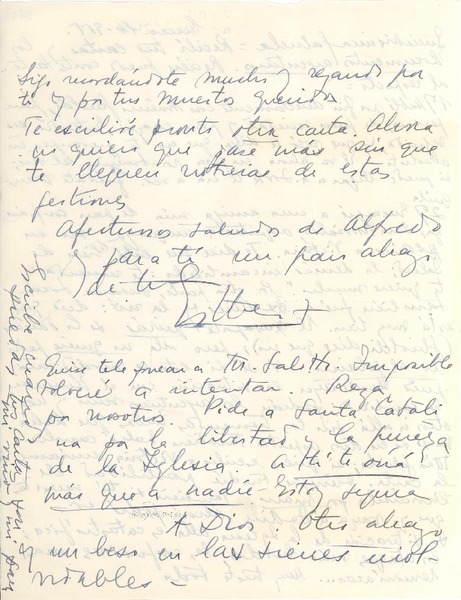 Sigo recordándote mucho y rezando por
ti y por tus muertos queridos
Te escribiré pronto otra carta. Ahora
no quiero que pase más sin que
te lleguen noticias de estas
gestiones
Afectuosos saludos de Alfredo
y para ti un gran abrazo
de tu
Esther
Quise telefonear a M. Saletti. Imposible
Volveré a intentar. Reza
por nosotros. Pide a Santa Catali
na por la libertad y la pureza
de la Iglesia. A ti te oirá
más que a nadie. Estoy segura
A Dios. Otro abrazo
y un beso en las sienes inol-
vidables -
Escribe cuando
puedas. Tus cartas son